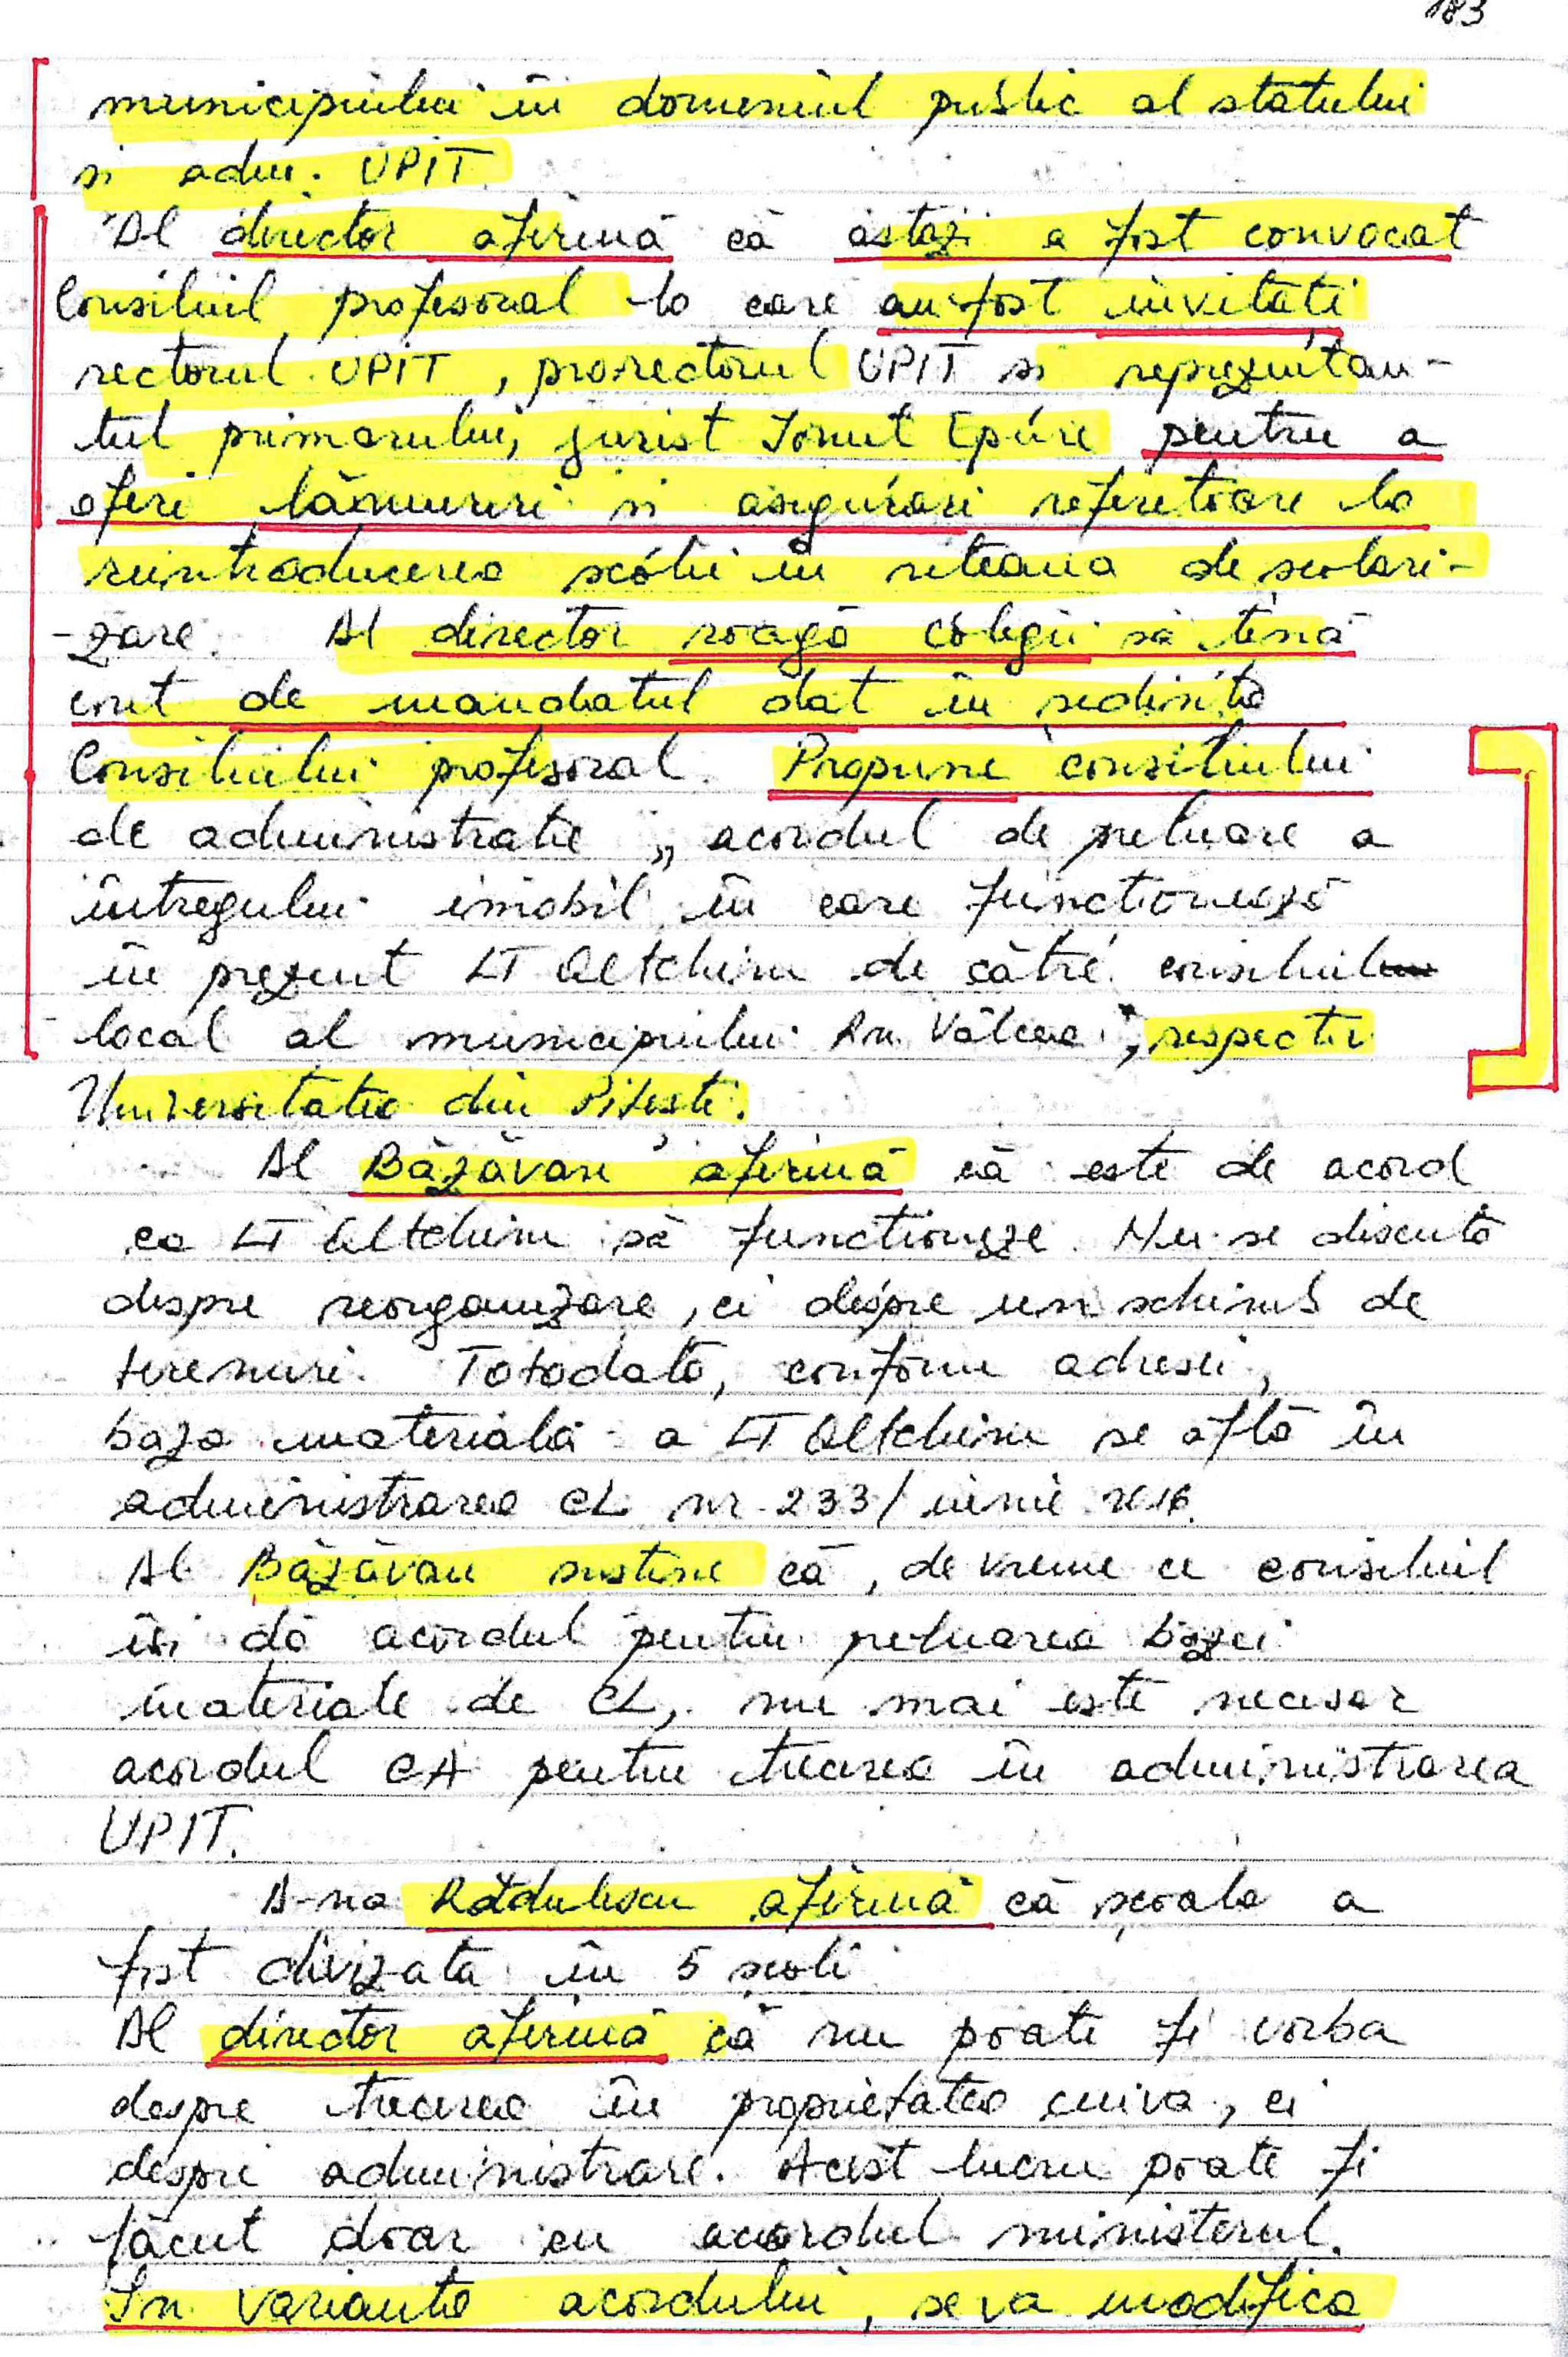 183
municipiului în domeniul public al statului
si adm. UPIT
Dl director afirmă că astăzi a fost convocat
Consiliul profesoral la care au fost invitati
rectorul UPIT, prorectorul UPIT si reprezintan-
tul primarului, jurist Ionut Epure pentru a
oferi lămuriri si asigurări referitoare la
reintroducerea scolii în reteaua de scolari-
-zare. Dl director roagă colegii să tină
cont de mandatul dat în sedinta
Consiliului profesoral. Propune consiliului
de administratie „ acordul de preluare a
întregului imobil în care functionează
în prezent LT Oltchim de către consiliul
local al municipiului Rm. Vâlcea ", respectiv
Universitatea din Pitesti.
Dl Băzăvan afirmă că este de acord
ca LT Oltchim să functioneze. Nu se discută
despre reorganizare, ci despre un schimb de
terenuri. Totodată, conform adresei,
baza materială a LT Oltchim se află în
administrarea CL nr. 233/ iunie 2016.
Dl Băzăvan sustine că, de vreme ce consiliul
îsi dă acordul pentru preluarea bazei
materiale de CL, nu mai este necesar
acordul CA pentru trecerea în administrarea
UPIT.
D-na Rădulescu afirmă că scoala a
fost divizată în 5 scoli
Dl director afirmă că nu poate fi vorba
despre trecerea în proprietatea cuiva, ci
despre administrare. Acest lucru poate fi
făcut doar cu acordul ministerul.
În varianta acordului, se va modifica